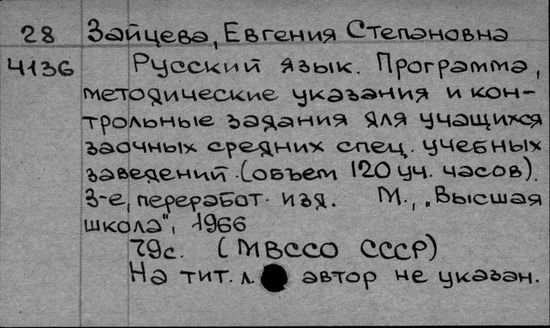 28 Зайцева, Евгения Степановна
4136 Русский язык. Программа,
методические указания и кон-
трольные задания для учащихся
заочных средних спец. учебных
заведений (объем 120 уч. часов).
3-е, переработ. изд. М., „Высшая
школа", 1966
79с. (МВССО СССР)
На тит. л. автор не указан.